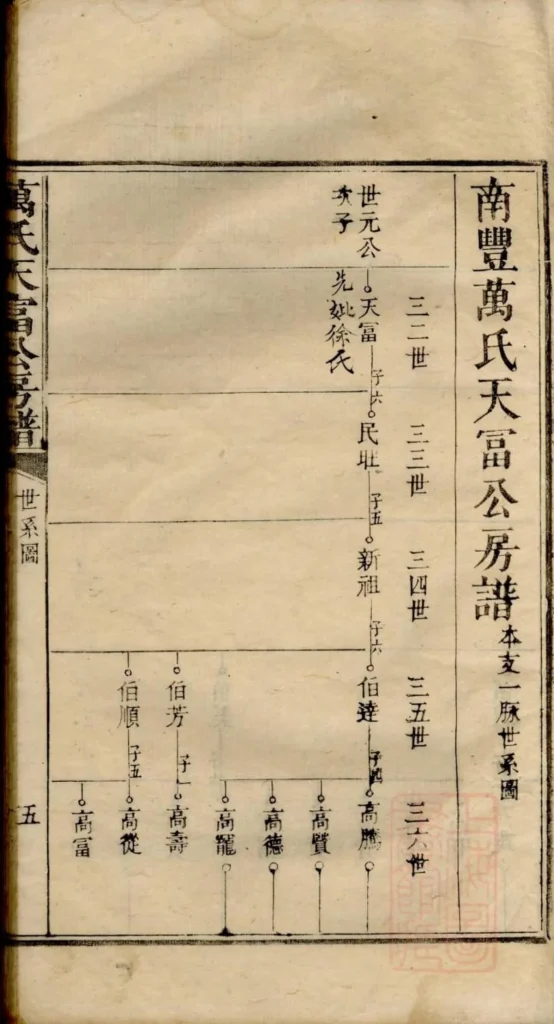 南豐萬氏天冨公房譜
本支一脉世系圖
三二世
三三世
三四世
三五世
三六世
世元公
次子
天冨
先妣徐氏
子六
民
子五
新祖
子六
伯達
子四
高騰
高賢
高德
高寵
伯芳
子一
高壽
伯順
子五
高從
高冨
萬氏天富公房譜
世系圖
五